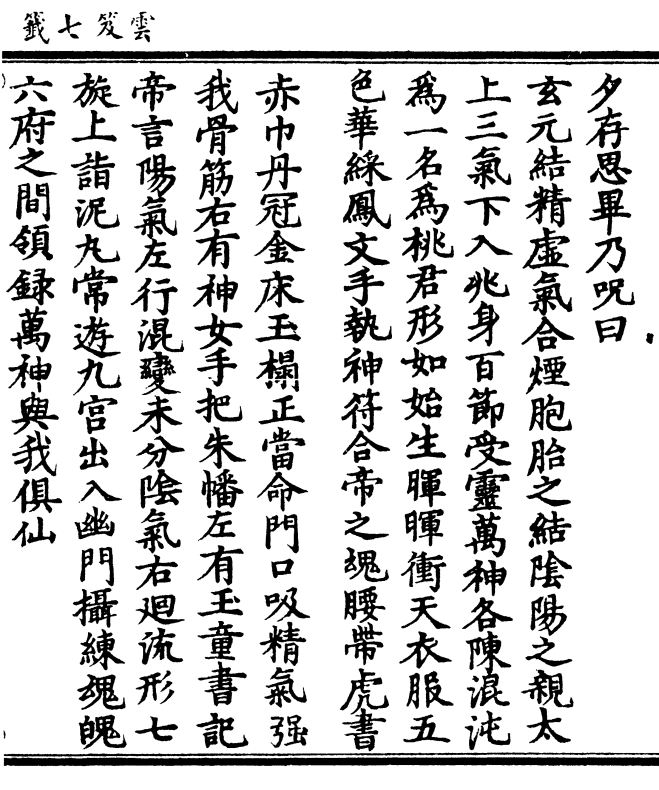 雲笈七籤
夕存思畢乃呪曰
玄元結精虛氣合煙胞胎之結陰陽之親太
上三氣下入兆身百節受靈萬神各陳混沌
為一名為桃君形如始生暉暉衝天衣服五
色華綵鳳文手執神符合帝之魂腰帶虎書
赤巾丹冠金床玉榻正當命門口吸精氣强
我骨筋右有神女手把朱幡左有玉童書記
帝言陽氣左行混變未分陰氣右迴流形七
旋上詣泥丸常遊九宮出入幽門攝練魂魄
六府之間領録萬神與我俱仙